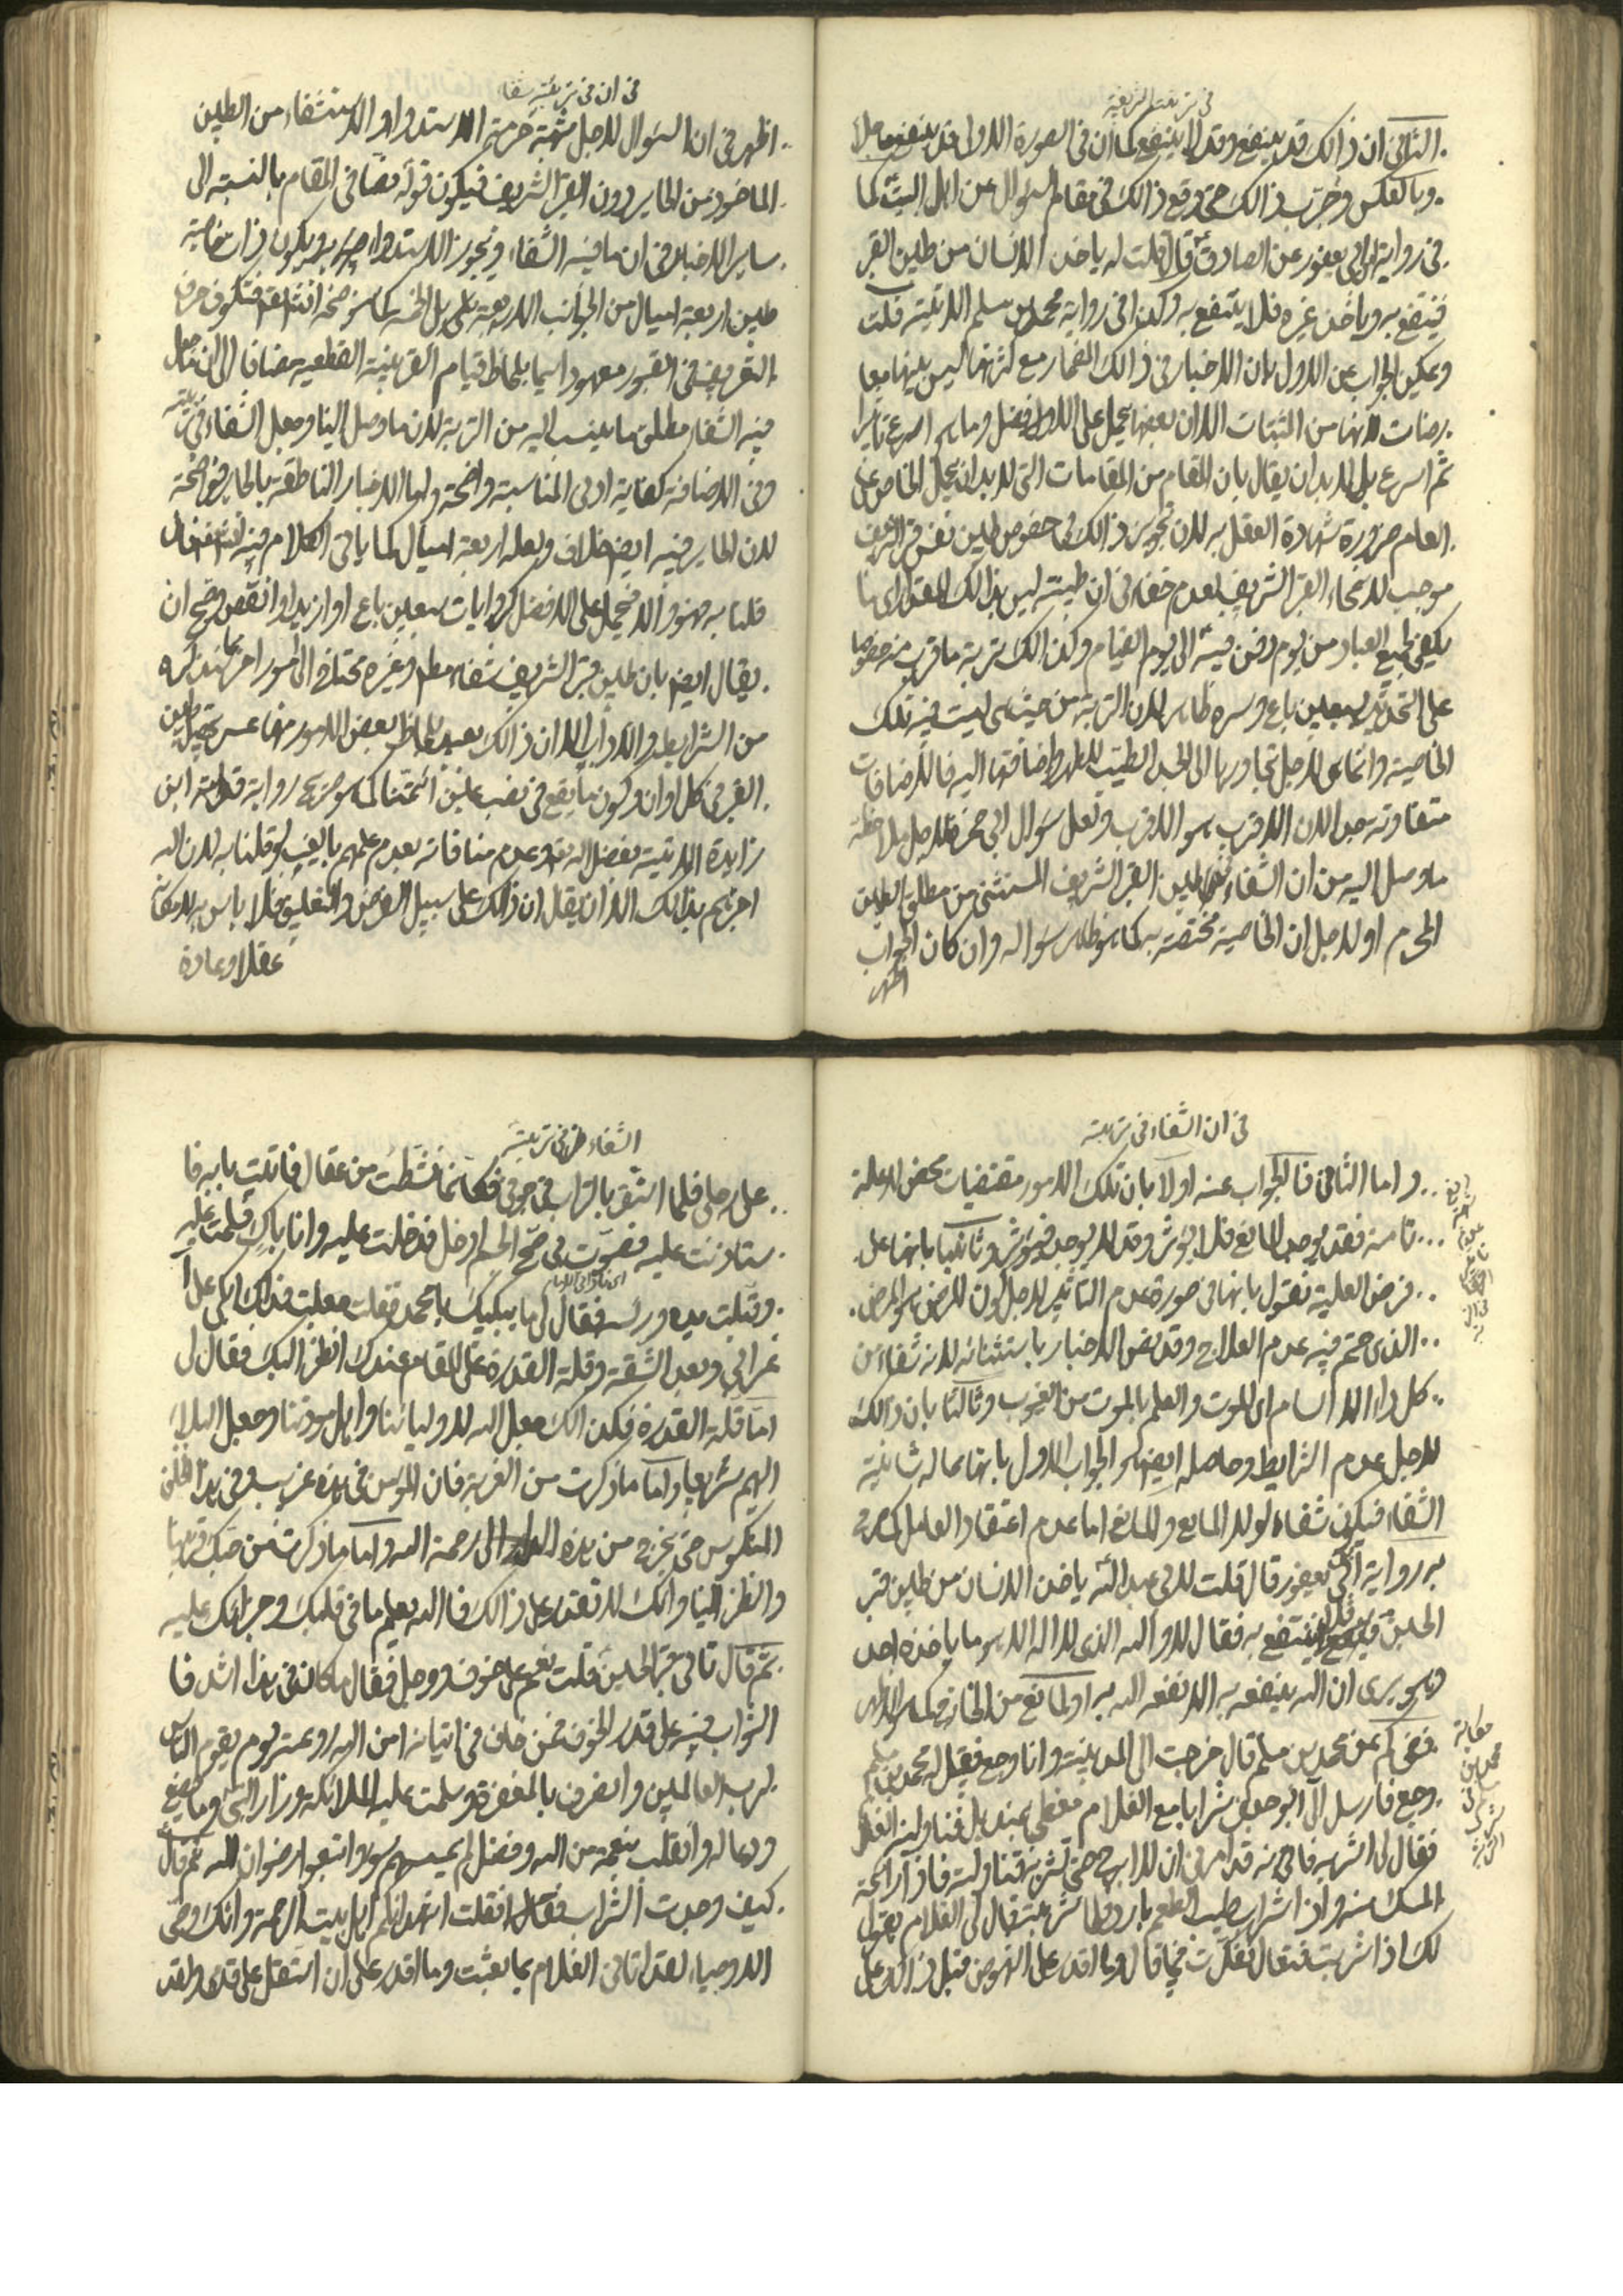 في تربته الشريفة
الثاني ان ذالك قد ينفع وقد لا ينفع كما ان في الصورة الاولى قد ينفع
وبالعكس وجرّب ذالك حتى وقع ذالك في مقام السؤال عن اهل البيت كما
في رواية ابن ابي يعفور عن الصادق قال قلت له ياخذ الانسان من طين القبر
فينتفع به وياخذ غيره فلا ينتفع به وكذا في رواية محمد بن مسلم الاتية قلت
ويمكن الجواب عن الاول بان الاخبار في ذالك المضمار مع كثرتها ليس بينها
لانها من المثبتات الا ان بعضها يحمل على الافضل وما هو اسرع تاثيرا
ثم اسرع بل لا بد ان يقال بان المقام من المقامات التي لا بد ان يحمل الخاص على
العام ضرورة شهادة العقل به لان تجويز ذالك في خصوص طين نفس قبر الشريف
موجب لامحاء القبر الشريف لعدم خفاء في ان طينته ليس بذالك المقدار
يكفي لجميع العباد من يوم دفن فيه الى يوم القيام وكذالك تربة ما قرب منه خصوصا
على التحديد بسبعين باع وسره ظاهر لان التربة من حيث هي ليست فيه تلك
الخاصية وانما هي لاجل تجاورها الى الجسد الطيب المطهر واضافتها اليه فالاضافات
متفاوتة جدا لان الاقرب هو الاقرب ولعل سؤال ابي حمزة لاجل ملاحظة
ما وصل اليه من ان الشفاء في طين القبر الشريف المستثنى من مطلق الطين
المحرم او لاجل ان الخاصية مختصة به كما هو ظاهر سؤاله وان كان الجواب
اظهر
في ان في تربته شفاء
اظهر في ان السؤال لاجل شبهة حرمة الاستدواء والاستشفاء من الطين
الماخوذ من الحاير دون القبر الشريف فيكون قوله نصا في المقام بالنسبة الى
ساير الاخبار في ان ما فيه الشفاء ويجوز الاستدواء به ويكون ذا خاصية
طين اربعة اميال من الجوانب الاربعة
التعريف في القبور معهود اسيما بلحاظ قيام القرينة القطعية مضافا الى ان ما جعل
فيه الشفاء مطلق ما ينسب اليه من التربة لان ما وصل الينا وجعل الشفاء في تربته
وفي الاضافة كفاية ادنى المناسبة واضحة واما الاخبار الناطقة بالحاير فواضحة
لان الحاير فيه ايضا خلاف ولعله اربعة اميال كما ياتي الكلام فيه
قلنا به فهو والا فيحمل على الافضل كروايات سبعين باع او ازيد او انقص وصح ان
يقال ايضا بان طين قبر الشريف شفاء مطلقا وغيره تحتاج الى امور اخر كما نذكره
من الشرايط والاداب الا ان ذالك بعيد بلحاظ بعض الامور منها عسر تحصيل طين
القبر في كل اوان وكون ما يقع في نصب عين ائمتنا كما هو صريح رواية
زايدة الاتية بفضل اله تعالى وعدم منافاته بعدم علمهم بالغيب لو قلنا به لان اله
اخبرهم بذالك الا ان يقال ان ذالك على سبيل الفرض والتعليق فلا باس به لامكانه
عقلا وعادة
في ان الشفاء في تربته
واما الثاني فالجواب عنه اولا بان تلك الامور مقتضيات محض لا علة
تامة فقد يوجد المانع فلا يؤثر وقد لا يوجد فيؤثر وثانيا بانها على
فرض العلية نقول بانها في صورة عدم التاثير لاجل كون المرض هو المرض
الذي حتم فيه عدم العلاج وقد نص الاخبار باستثنائه لانه شفاء من
كل داء الا السام اى الموت والعلم بالموت من الغيوب وثالثا بان ذالك
لاجل عدم الشرايط وحاصله ايضا هو الجواب الاول بانها مما له شانية
الشفاء فيكون شفاء لولا المانع والمانع اما عدم اعتقاد العامل كما صرح
به رواية ابن ابي يعفور قال قلت لابي عبد الله ياخذ الانسان من طين قبر
الحسين فينتفع به فقال لا واله الذي لا اله الا هو ما ياخذه احد
وهو يرى ان اله ينفعه به الا نفعه اله به او لمانع من الخارج كما هو الاظهر
ففي كم عن محمد بن مسلم قال خرجت الى المدينة وانا وجع فقيل له محمد بن مسلم
وجع فارسل الى ابو جعفر شرابا مع الغلام مغطى بمنديل فناولنيه الغلام
فقال لى اشربه فانه قد امرنى ان لا ابرح حتى تشربه فتناولته فاذا رائحة
المسك منه واذا شراب طيب الطعم بارد فلما شربته قال لى الغلام يقول
لك اذا شربت فتعال ففكرت فيما قال وما اقدر على النهوض قبل ذالك على
حكاية
محمد بن
مسلم
الشفاء في تربته
على رجلى فلما استقر بالتراب في جوفي فكانما نشطت من عقال فاتيت بابه فا
ستاذنت عليه فصوّت بى صحّ الجسم ادخل فدخلت عليه وانا باكٍ فسلمت عليه
وقبّلت يده وراسه فقال لى ما يبكيك يا محمد فقلت جعلت فداك ابكى على ا
غترابى وبعد الشقة وقلة القدرة على المقام عندك انظر اليك فقال لى
اما قلة القدرة فكذالك جعل اله لاوليائنا واهل مودتنا وجعل البلاء
اليهم سريعا واما ما ذكرت من الغربة فان المؤمن في هذه غريب وفى هذا الخلق
المنكوس حتى يخرج من هذه الدار الى رحمة اله واما ما ذكرت من حبك قربنا
والنظر الينا وانك لا تقدر على ذالك فاله يعلم ما في قلبك وجزائك عليه
ثم قال تاتى قبر الحسين قلت نعم على خوف ووجل فقال ما كان في هذا اشد فا
الثواب فيه على قدر الخوف فمن خاف في اتيانه امن اله روعته يوم يقوم الناس
لرب العالمين وانصرف بالمغفرة وسلمت عليه الملائكة وزار النبى وما يصنع
ودعا له وانقلب بنعمة من اله وفضل لم يمسسهم سوء واتبعوا رضوان اله ثم قال
كيف وجدت الشراب فقلت اشهد انكم اهل بيت الرحمة وانك وصى
الاوصياء لقد اتانى الغلام بما بعثت وما اقدر على ان استقل على قدمى ولقد